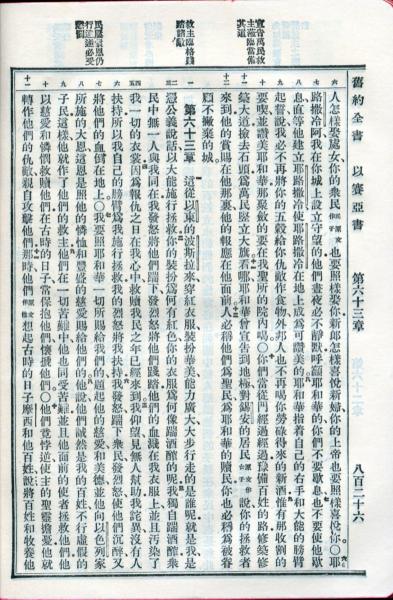 舊約全書 以賽亞書 第六十三章 八百二十六
宣告萬民救
主蒞臨當備
其道
救主臨格踐
踏諸敵
民屢蒙恩仍
行
必受
六 人怎樣娶處女你的衆民民原文作子也要照樣娶你新郎怎樣喜悅新婦你的上帝也要照樣喜悅你〇耶
七 路撒冷阿我在你城上設立守望的他們晝夜必不靜默呼籲耶和華的你們不要歇息也不要使他歇
八 息直等他建立耶路撒冷使耶路撒冷在地上成爲可讚美的耶和華指着自己的右手和大能的膀臂
九 起誓說我必不再將你的五穀給你仇敵作食物外邦人也不再喝你勞碌得來的新酒惟有那收割的
十 要喫並讚美耶和華那聚斂的要在我聖所的院內喝〇你們當從門經過經過豫備百姓的路修築修
十一 築大道撿去石頭爲萬民豎立大旗看哪耶和華曾宣告到地極對錫安的居民原文作女子說你的拯救者
十二 來到他的賞賜在他那裏他的報應在他面前人必稱他們爲聖民爲耶和華的贖民你也必稱爲被眷
顧不撇棄的城
一 第六十三章 這從以東的波斯拉來穿紅衣服裝扮華美能力廣大大步行走的是誰呢就是我是
二三 憑公義說話以大能施行拯救你的裝扮爲何有紅色你的衣服爲何像踹酒醡的呢我獨自踹酒醡衆
民中無一人與我同在我發怒將他們踹下發烈怒將他們踐踏他們的血濺在我衣服上並且汚染了
四五 我一切的衣裳因爲報仇之日在我心中救贖我民之年已經來到我仰望見無人幫助我詫異沒有人
六 扶持所以我自己的膀臂爲我施行拯救我的烈怒將我扶持我發怒踹下衆民發烈怒使他們沉醉又
七 將他們的血倒在地上〇我要照耶和華一切所賜給我們的題起他的慈愛和美德並他向以色列家
八 所施的大恩這恩是照他的憐恤和豐盛的慈愛賜給他們的他說他們誠然是我的百姓不行虛假的
九 子民這樣他就作了他們的救主他們在一切苦難中他也同受苦難並且他面前的使者拯救他們他
十 以慈愛和憐憫救贖他們在古時的日子常保抱他們懷搋他們〇他們竟悖逆使主的聖靈擔憂他就
十一 轉作他們的仇敵親自攻擊他們那時他們原文作他想起古時的日子摩西和他百姓說將百姓和牧養他